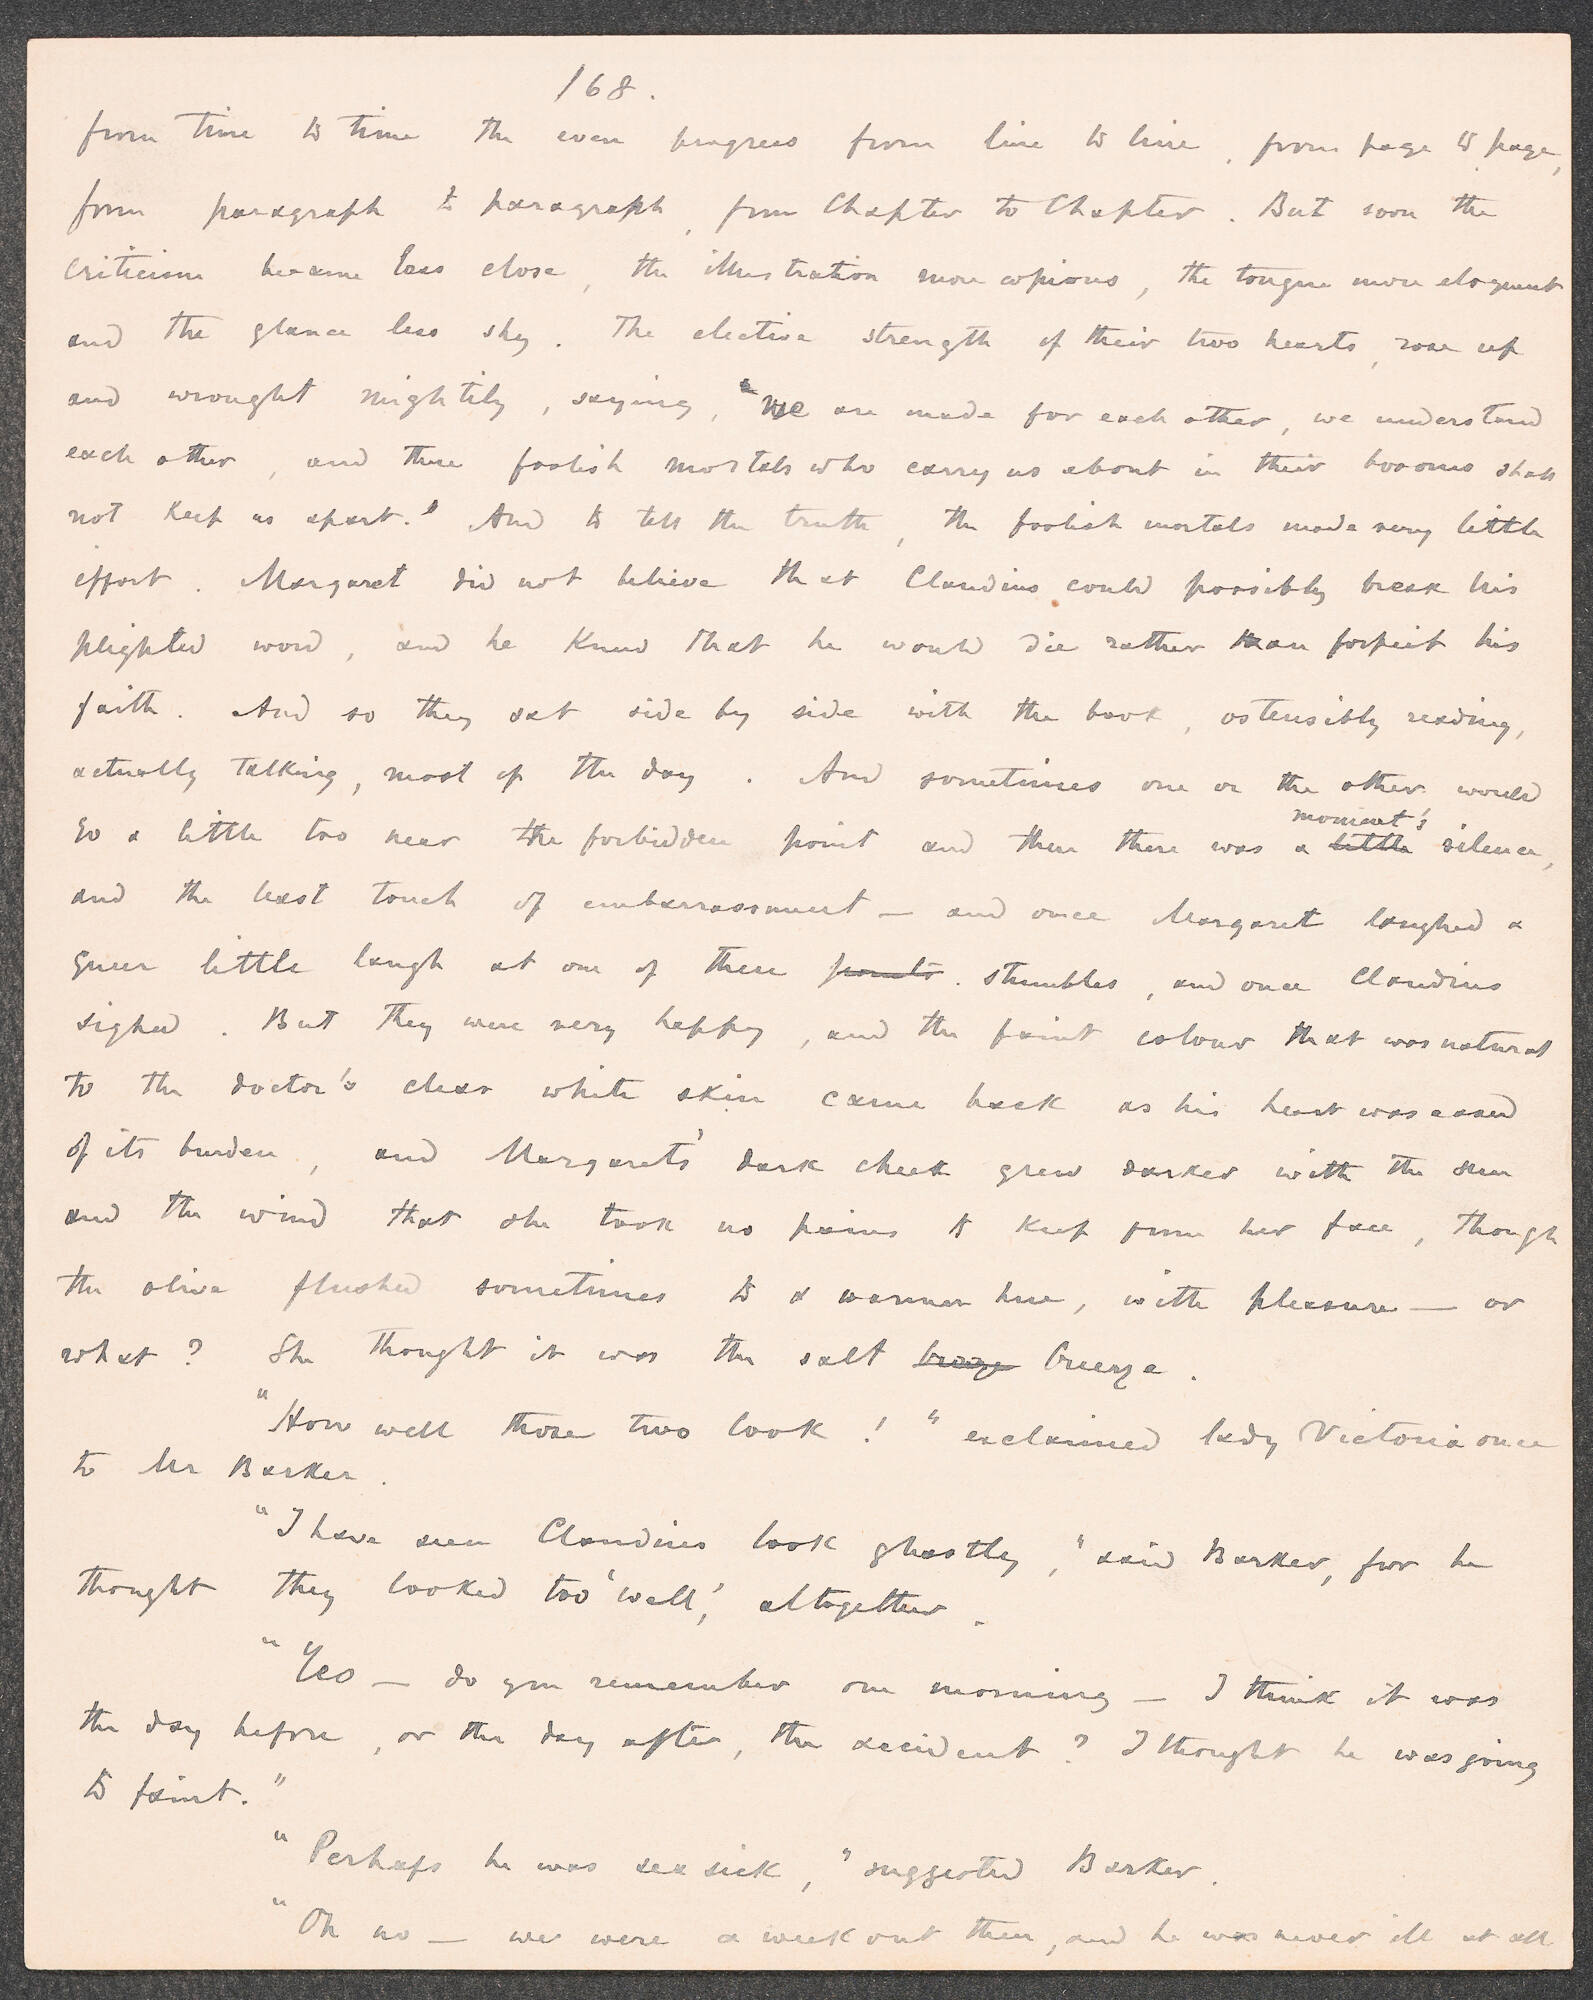 168.
from time to time the even progress from line to line, from page to page,
from paragraph to paragraph, from Chapter to Chapter. But soon the
criticism became less close, the illustration more copious, the tongue more eloquent
and the glance less shy. The elective strength of their two hearts, rose up
and wrought mightily, saying, "We are made for each other, we understand
each other, and these foolish mortals who carry us about in their bosoms shall
not keep us apart." And to tell the truth, the foolish mortals made very little
effort. Margaret did not believe that Claudius could possibly break his
plighted word, and he knew that he would die rather than forfeit his
faith. And so they sat side by side with the book, ostensibly reading,
actually talking, most of the day. And sometimes one or the other would
moment's
go a little too near the forbidden point and then there was a little silence,
and the least touch of embarrassment — and once Margaret laughed a
queer little laugh at one of these points. stumbles, and once Claudius
sighed. But they were very happy, and the faint colour that was natural
to the doctor's clear white skin came back as his heart was eased
of its burden, and Margaret's dark cheek grew darker with the sun
and the wind that she took no pains to keep from her face, though
the olive flushed sometimes to a warmer hue, with pleasure — or
what? She thought it was the salt breeze.
"How well those two look!" exclaimed lady Victoria once
to Mr Barker.
"I have seen Claudius look ghastly," said Barker, for he
thought they looked too 'well', altogether.
"Yes — do you remember one morning — I think it was
the day before, or the day after, the accident? I thought he was going
to faint."
"Perhaps he was sea sick," suggested Barker.
"Oh no — we were a week out then, and he was never ill at all